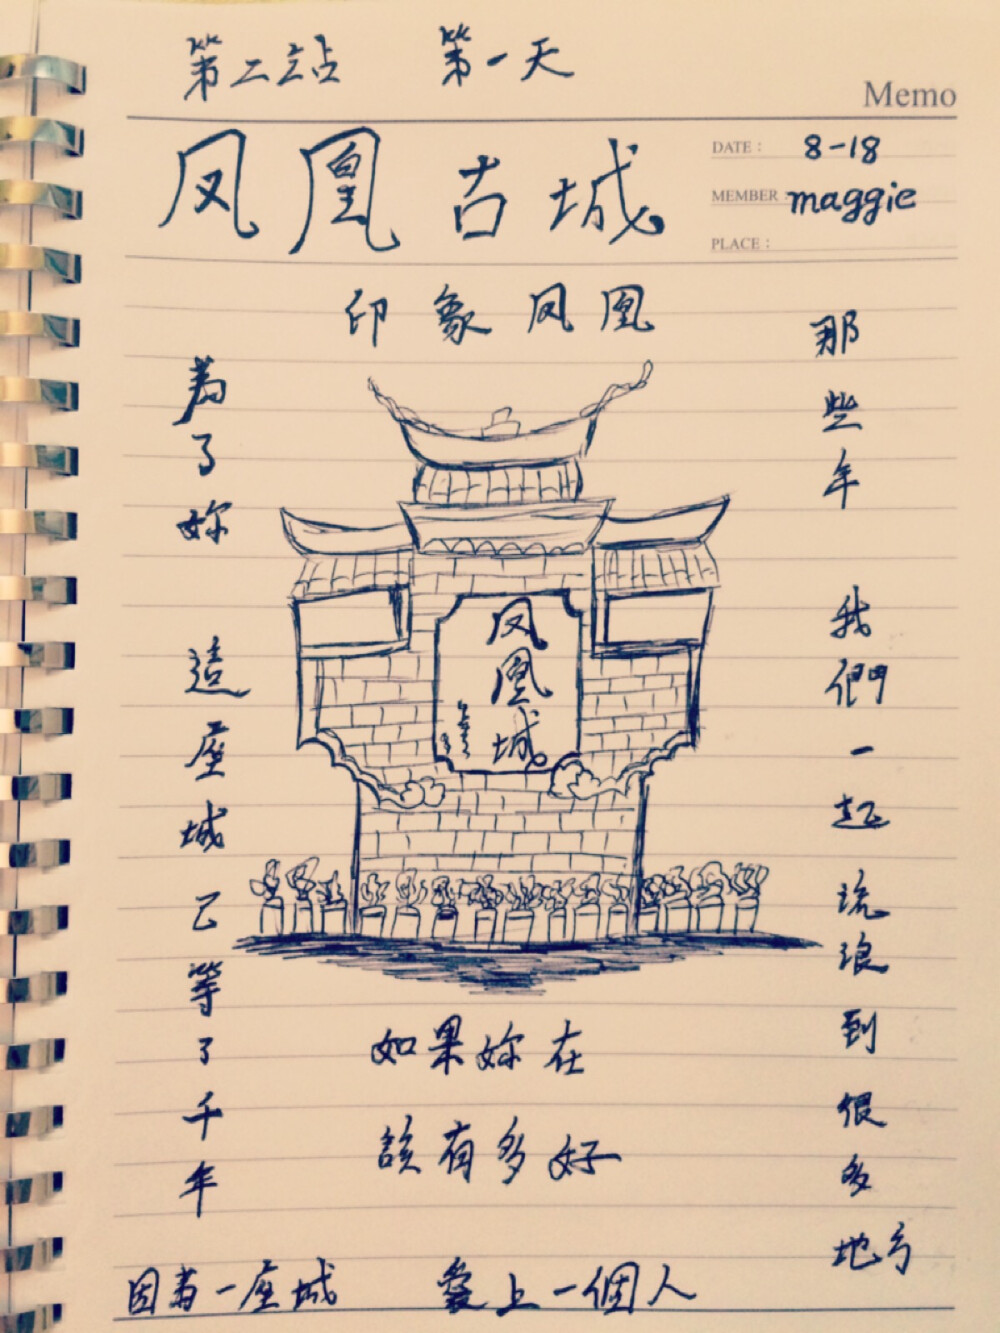 第二站 第一天
Memo
凤凰古城
DATE： 8-18
MEMBER： maggie
PLACE：
印象凤凰
為了妳 這座城已等了千年
凤凰城
那些年 我們一起流浪到很多地方
如果妳在
該有多好
因為一座城 愛上一個人